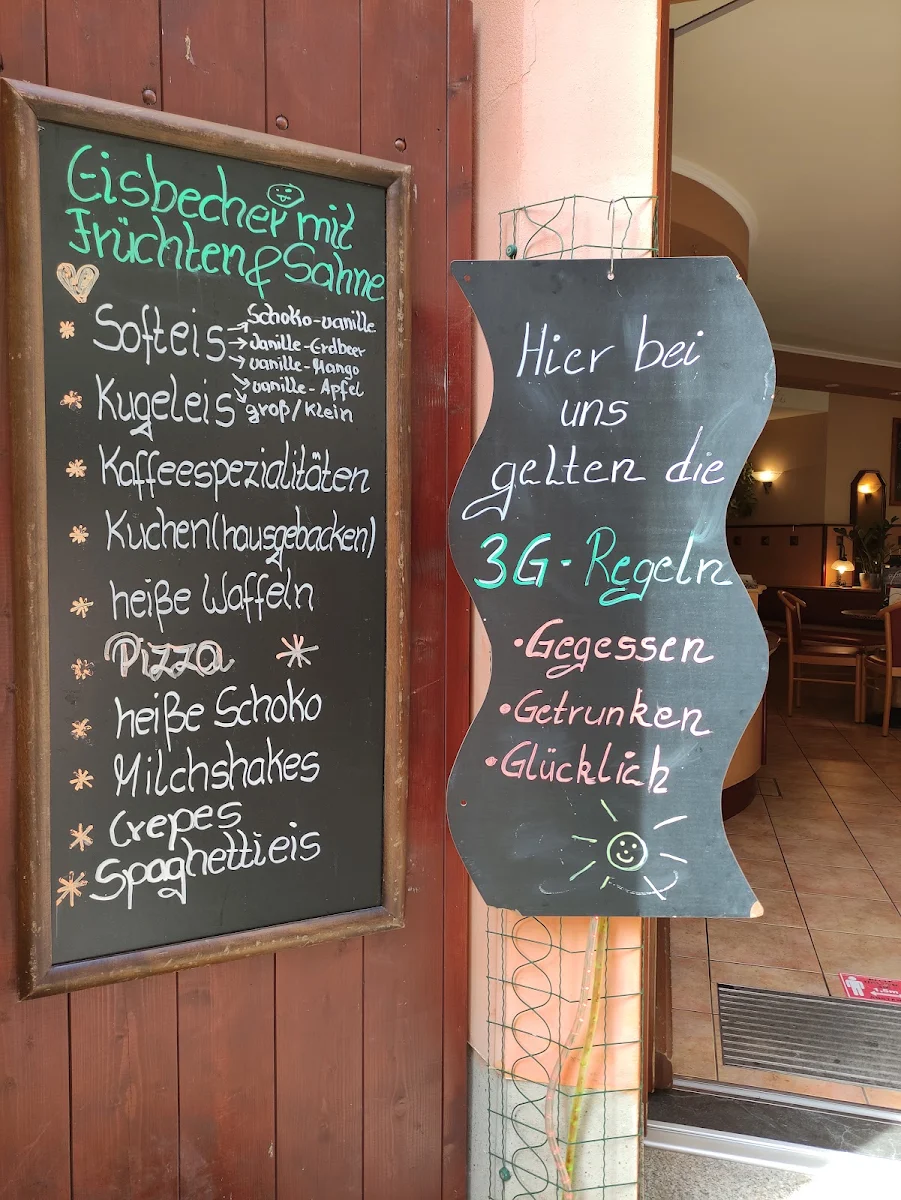 Eisbecher mit
Früchten & Sahne
Softeis
→ Schoko-vanille
→ Vanille-Erdbeer
→ vanille-Mango
→ vanille-Apfel
Kugeleis
→ groß/klein
Kaffeespezialitäten
Kuchen (hausgebacken)
heiße Waffeln
Pizza
heiße Schoko
Milchshakes
Crepes
Spaghettieis
Hier bei
uns
gelten die
3G-Regeln
• Gegessen
• Getrunken
• Glücklich
1,5m